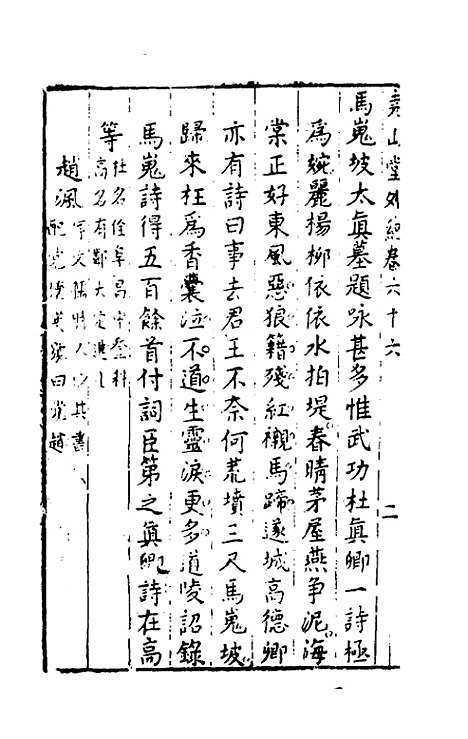 堯山堂外紀卷六十六 二
馬嵬坡太眞墓題詠甚多惟武功杜眞卿一詩極
爲婉麗楊柳依依水拍堤春晴茅屋燕争泥海
棠正好東風惡狼籍殘紅襯馬蹄遂城高德卿
亦有詩曰事去君王不奈何荒墳三尺馬嵬坡
歸來枉爲香囊泣不道生靈淚更多道陵詔錄
馬嵬詩得五百餘首付詞臣第之眞卿詩在高
等杜名佺阜昌中登科
高名有鄰大定進士
趙渢字文孺